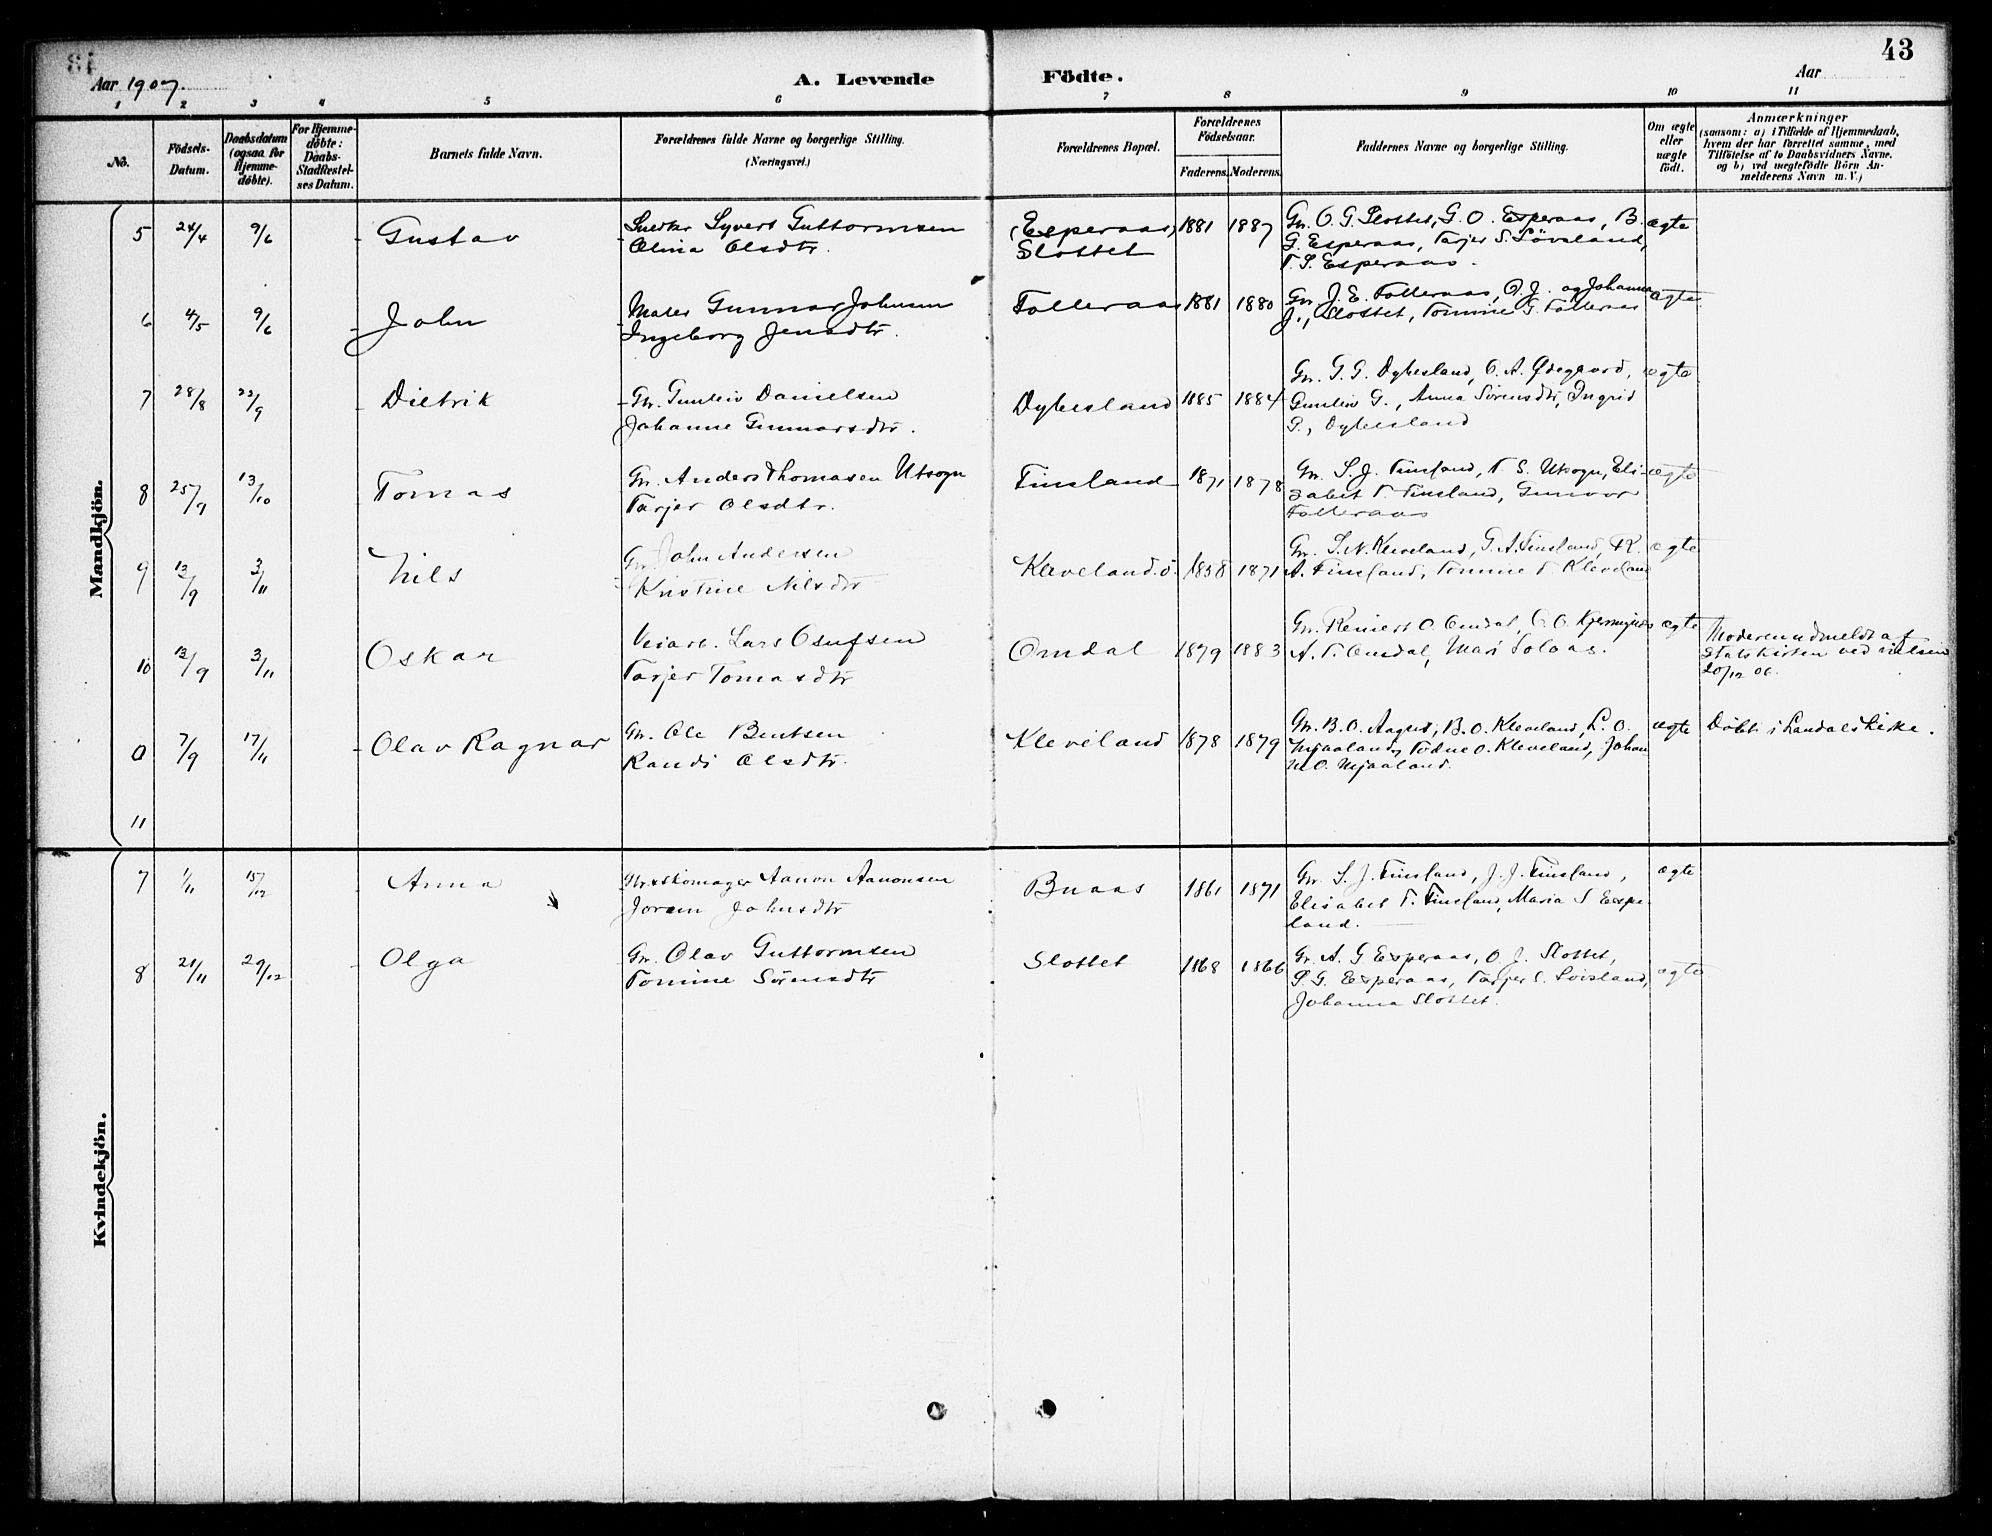 43
Aar 1907.
A. Levende Födte.
Aar
1 2 3 4 5 6 7 8 9 10 11
No.
Födsels-Datum.
Daabsdatum (ogsaa for Hjemme-döbte).
For Hjemme-döbte: Daabs-Stadfæstel-ses Datum.
Barnets fulde Navn.
Forældrenes fulde Navne og borgerlige Stilling.
(Næringsvei.)
Forældrenes Bopæl.
Forældrenes Födselsaar.
Faderens. Moderens.
Faddernes Navne og borgerlige Stilling.
Om ægte eller uægte födt.
Anmærkninger
(saasom: a) i Tilfælde af Hjemmedaab, hvem der har forrettet samme, med Tilföielse af to Daabsvidners Navne, og b) ved uægtefödte Börn An-melderens Navn m. V.)
Mandkjön.
5 24/4 9/6 Gustav
Snedker Syvert Guttormsen
Olina Olsdtr.
(Esperaas) Slottet
1881 1887
Gr. O. G. Slottet, G. O. Esperaas, B.
G. Esperaas, Tarjer S. Lövsland,
T. S. Esperaas.
ægte
6 4/5 9/6 John
Maler Gunnar Johnsen
Ingeborg Jensdtr.
Folleraas 1881 1880
Gr. J. E. Folleraas, O. J. og Johanna
J., Slottet, Tomine G. Folleraas
ægte
7 28/8 22/9 Dietrik
Gr. Gunleiv Danielsen
Johanne Gunnarsdtr.
Dybesland 1885 1884
Gr. G. G. Dybesland, O. A. Ødegaard,
Gunleiv G., Anna Sörensdtr, Ingrid
G., Dybesland
ægte
8 25/9 13/10 Tomas
Gr. Anders Thomasen Utsogn
Tarjer Olsdtr.
Finsland 1871 1878
Gr. S. J. Finsland, T. S. Utsogn, Eli-
sabet T. Finsland, Gunvor
Folleraas
ægte
9 12/9 3/11 Nils
Gr. John Andersen
Kristine Nilsdtr
Kleveland. ö. 1858 1871
Gr. S. N. Kleveland, G. A. Finsland, K.
A. Finsland, Tomine T Kleveland
ægte
10 12/9 3/11 Oskar
Veiarb. Lars Osufsen
Tarjer Tomasdtr
Omdal 1879 1883
Gr. Reinert O. Omdal, O. O.
A. T. Omdal, Mari Solaas.
ægte
Moderen udmeldt af
Statskirken ved
20/12 06.
0 7/9 17/11 Olav Ragnar
Gr. Ole Bentsen
Randi Olsdtr.
Kleveland 1878 1879
Gr. B. O. B. O. Kleveland, L. O.
Mjaaland, Todne O. Kleveland, Johan-
ne O. Mjaaland.
ægte
Döbt i Landals Kirke.
11
Kvindekjön.
7 1/11 15/12 Anna
Gr. skomager Aanon Aanonsen
Joren Johnsdtr
Buaas 1861 1871
Gr. S. J. Finsland, J. J. Finsland,
Elisabet T. Finsland, Maria S Eespe-
land.
ægte
8 21/11 29/12 Olga
Gr. Olav Guttormsen
Tomine Sörensdtr
Slottet 1868 1866
Gr. A. G Esperaas, O. J. Slottet,
S. G. Esperaas, Tarjer S. Lövsland,
Johanna Slottet.
ægte